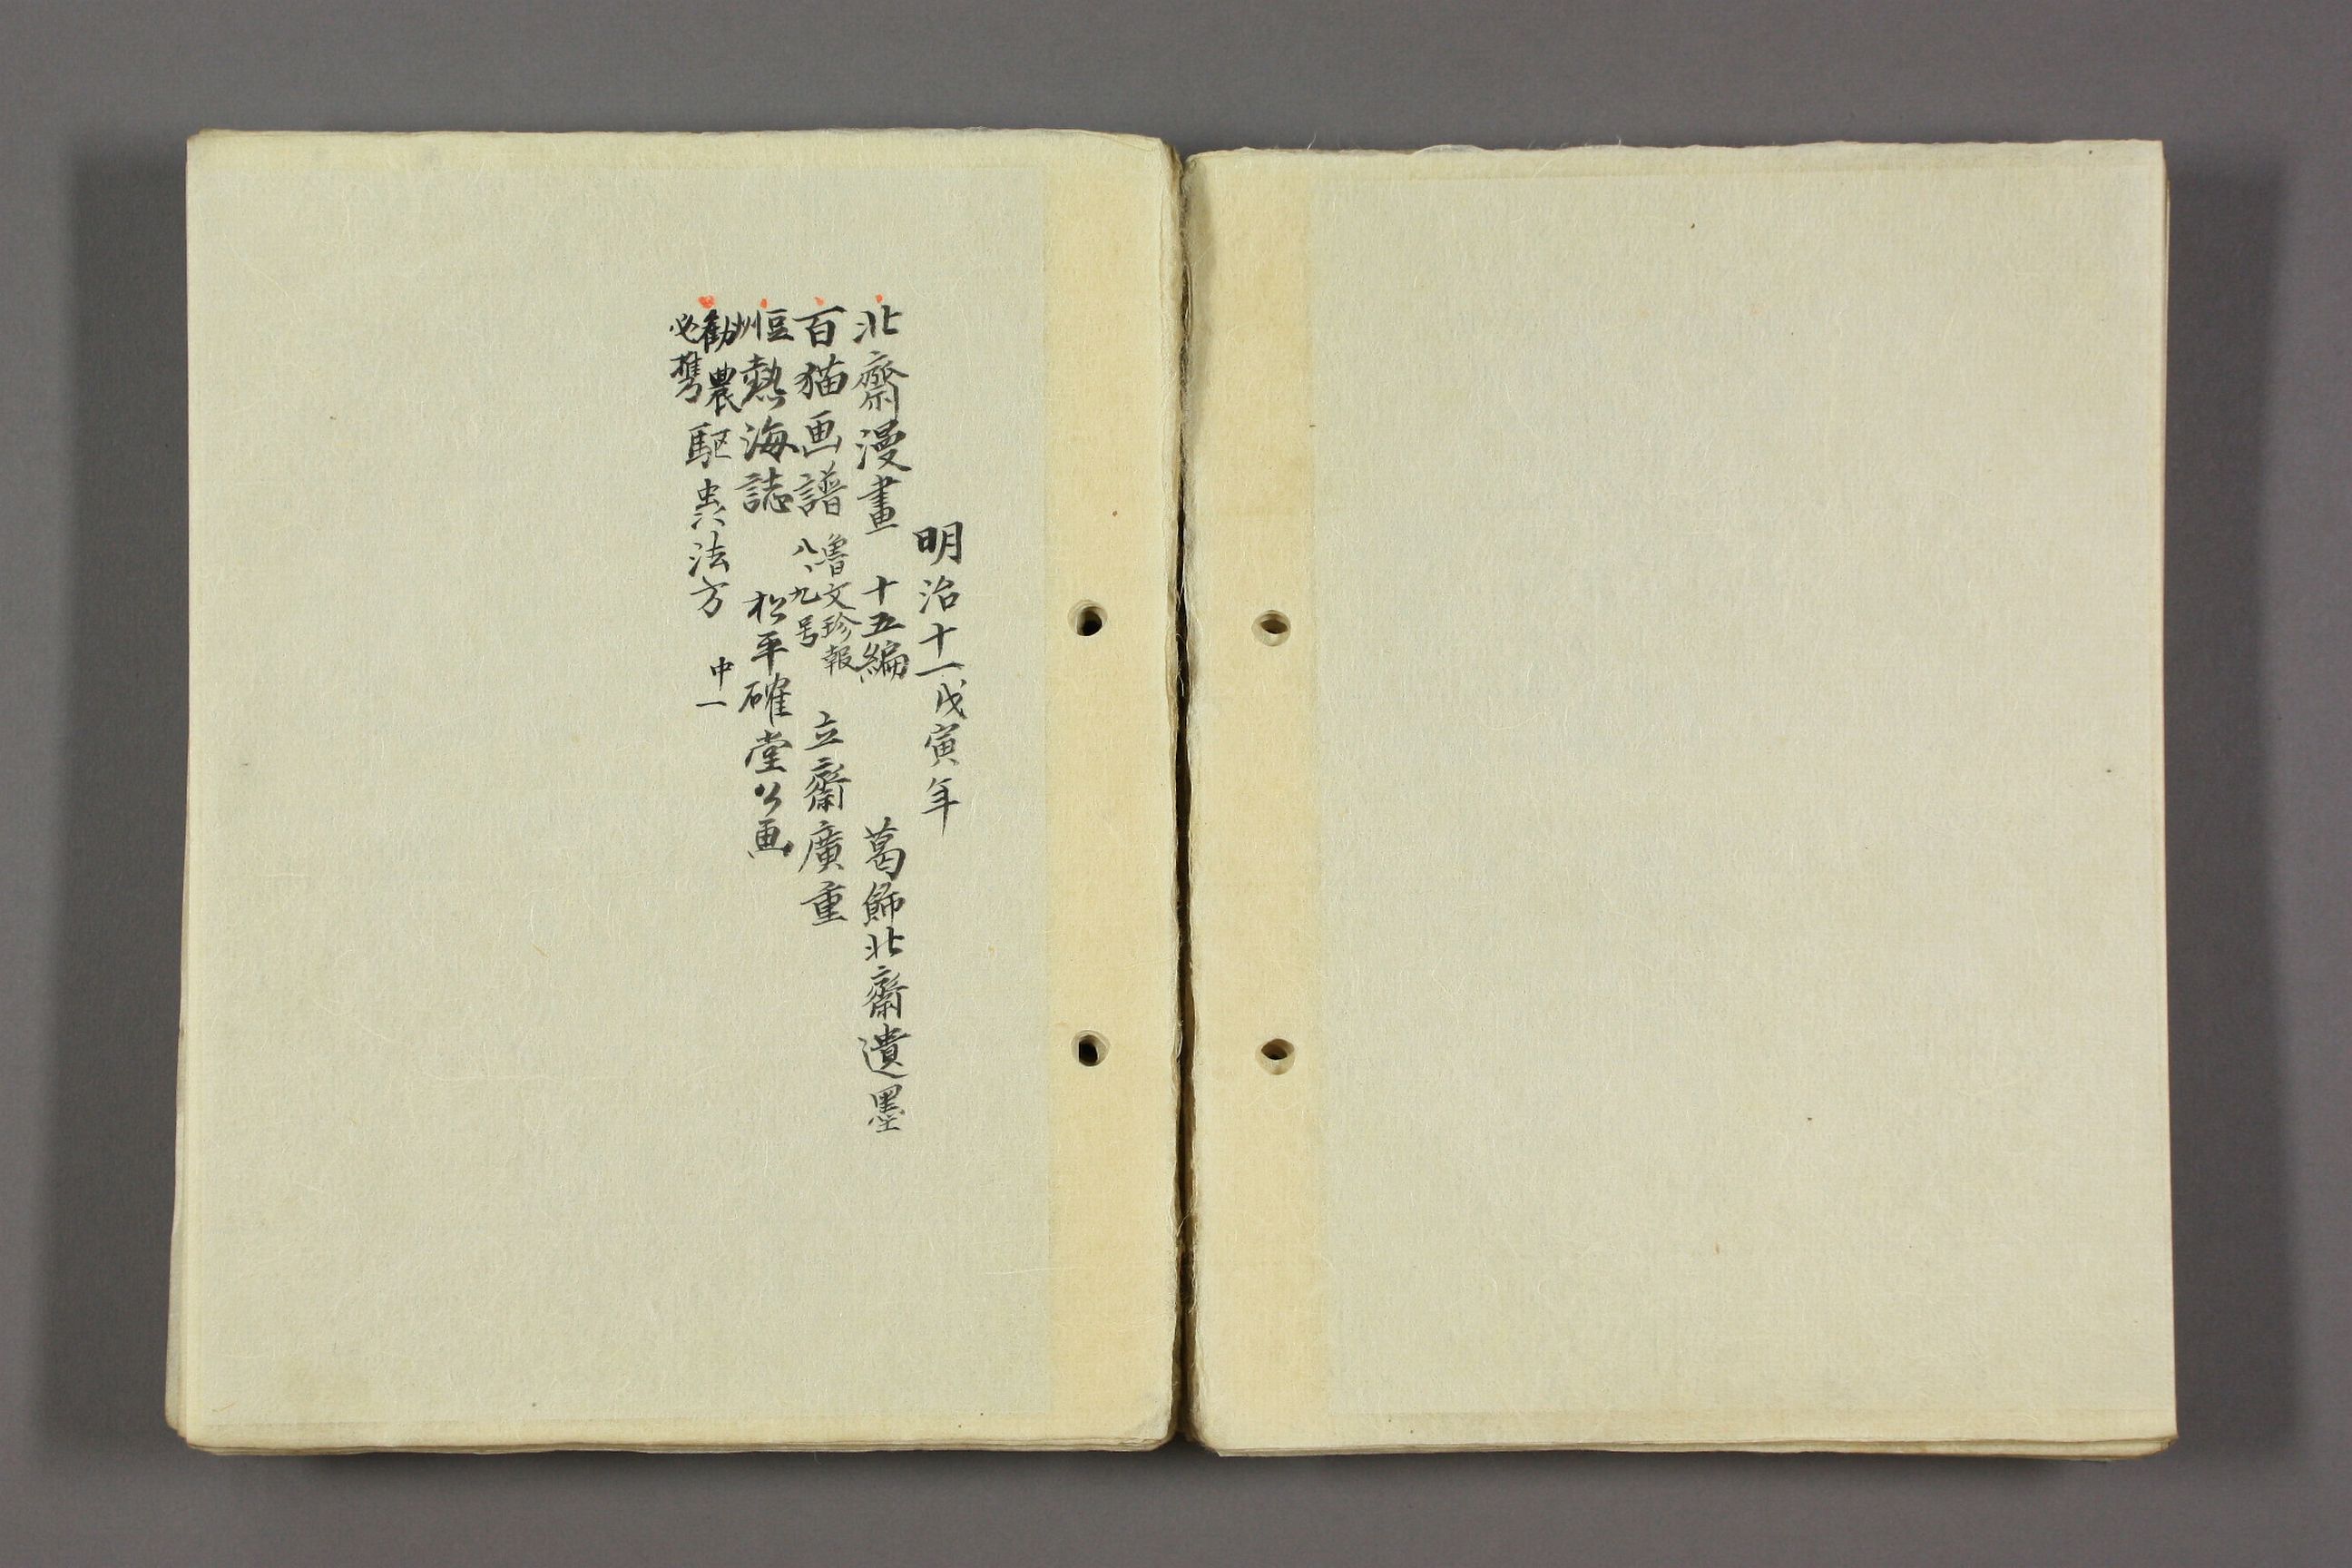 明治十一戊寅年
北齋漫畫 十五編 葛飾北齋遺墨
百猫画譜 魯文珍報 八、九号 立齋廣重
豆州 熱海誌 松平確堂公画
勧農必携 駆虫法方 中一